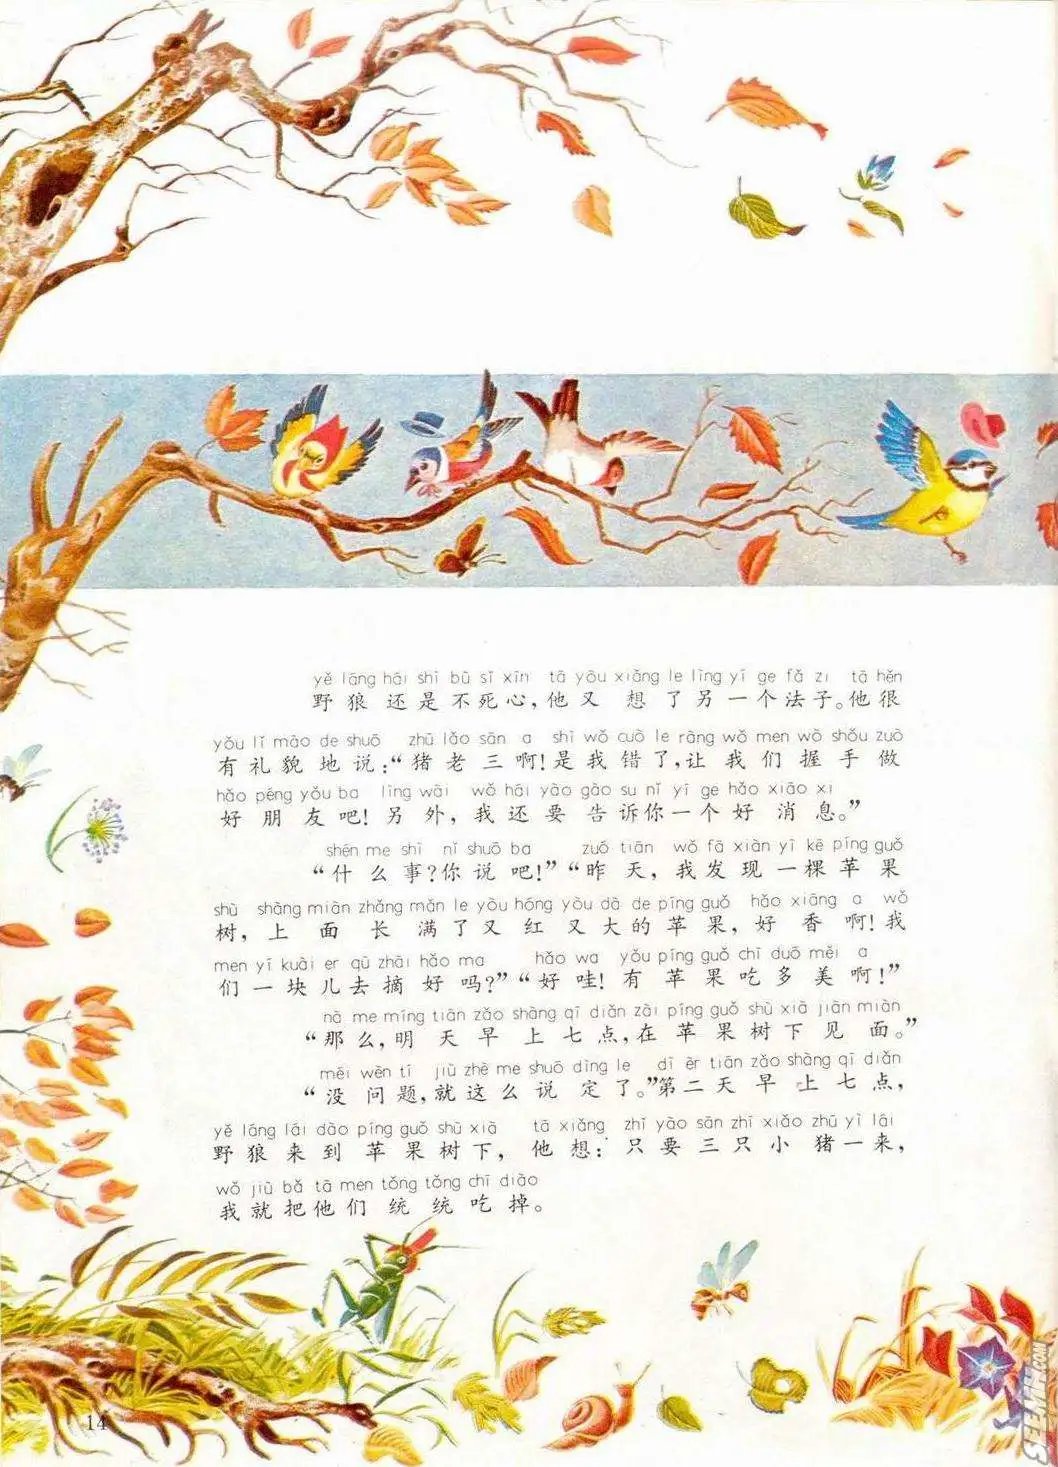 yě láng hái shì bù sǐ xīn tā yòu xiǎng le lìng yī ge fǎ zi tā hěn
野狼还是不死心,他又想了另一个法子。他很
yǒu lǐ mào de shuō zhū lǎo sān a shì wǒ cuò le ràng wǒ men wò shǒu zuò
有礼貌地说:“猪老三啊!是我错了,让我们握手做
hǎo péng yǒu ba lìng wài wǒ hái yào gào su nǐ yī ge hǎo xiāo xi
好朋友吧!另外,我还要告诉你一个好消息。”
shén me shì nǐ shuō ba zuó tiān wǒ fā xiàn yì kē píng guǒ
“什么事?你说吧!”“昨天,我发现一棵苹果
shù shàng miàn zhǎng mǎn le yòu hóng yòu dà de píng guǒ hǎo xiāng a wǒ
树,上面长满了又红又大的苹果,好香啊!我
men yī kuài er qù zhāi hǎo ma hǎo wa yǒu píng guǒ chī duō měi a
们一块儿去摘好吗?”“好哇!有苹果吃多美啊!”
nà me míng tiān zǎo shàng qī diǎn zài píng guǒ shù xià jiàn miàn
“那么,明天早上七点,在苹果树下见面。”
méi wèn tí jiù zhè me shuō dìng le dì èr tiān zǎo shàng qī diǎn
“没问题,就这么说定了。”第二天早上七点,
yě láng lái dào píng guǒ shù xià tā xiǎng zhǐ yào sān zhī xiǎo zhū yì lái
野狼来到苹果树下,他想:只要三只小猪一来,
wǒ jiù bǎ tā men tǒng tǒng chī diào
我就把他们统统吃掉。
14
SEEMH.COM